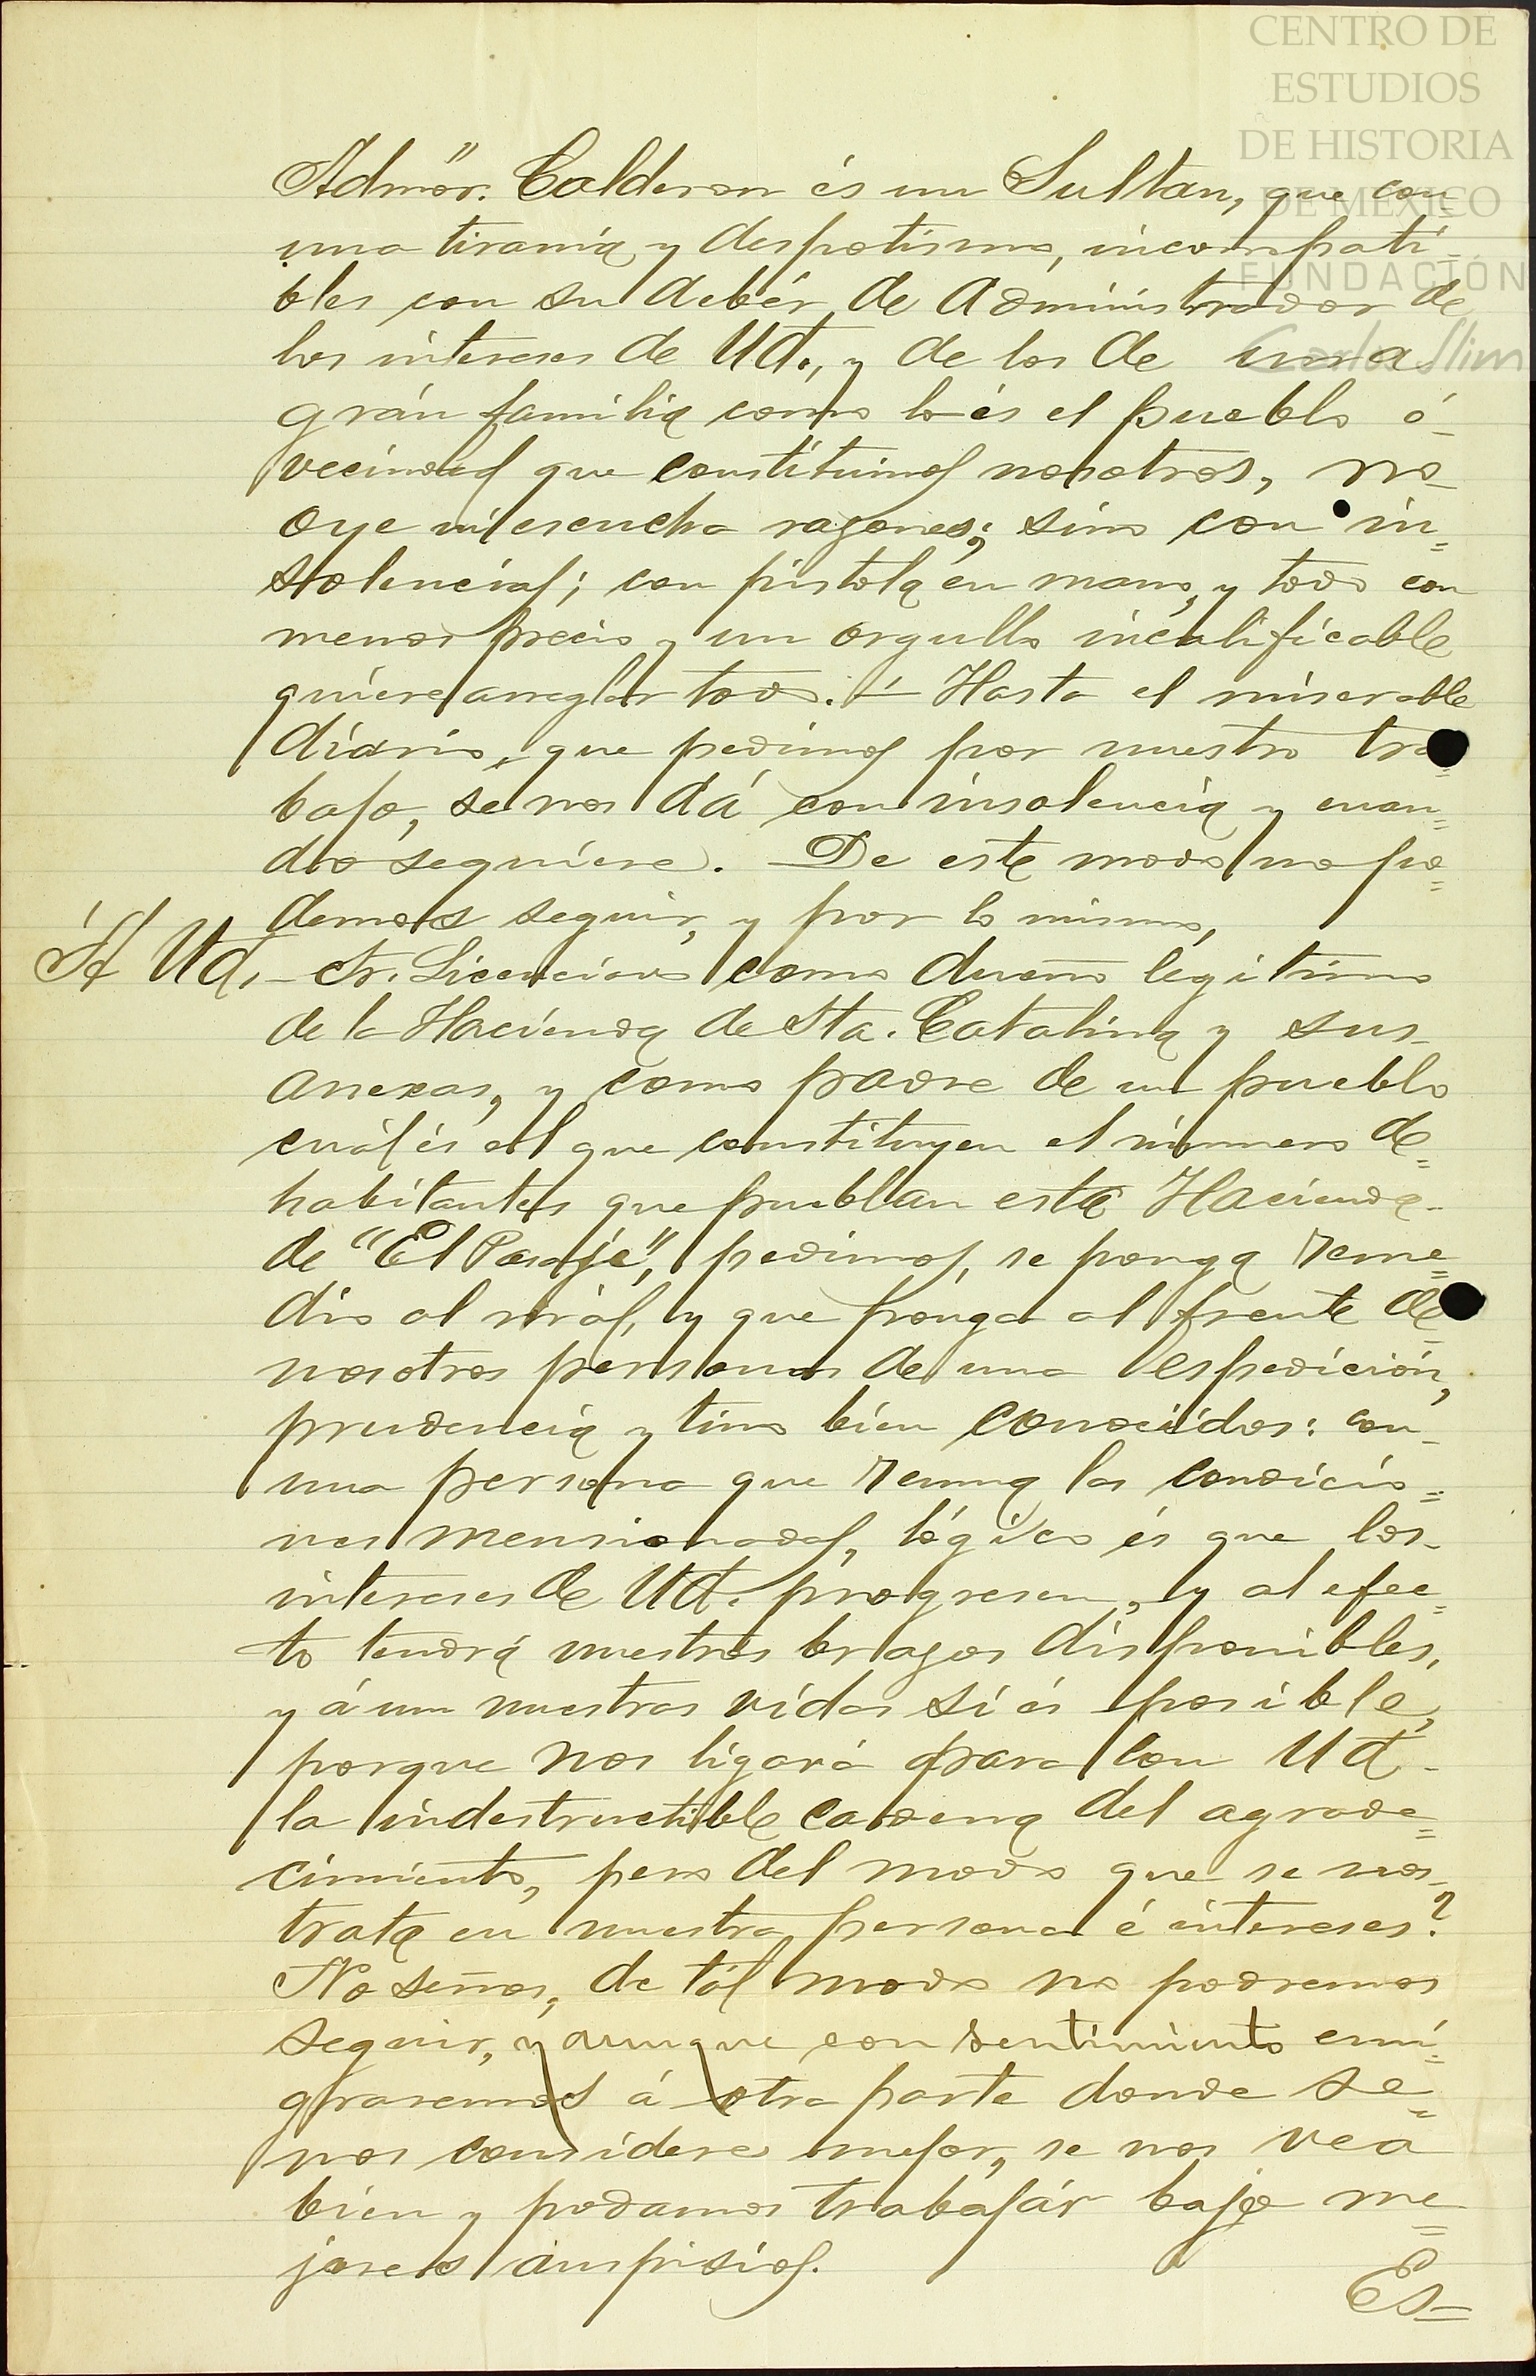 CENTRO DE
ESTUDIOS
DE HISTORIA
DE MEXICO
FUNDACIÓN
Carlos Slim
Admōr. Calderon és un Sultan, que con
una tiranía y despotismo, incompati-
bles con su debér de Administrador de
los intereses de Ud., y de los de una
grán familia como lo és el pueblo ó-
vecindad que constituimos nosotros, no-
oye ni escucha razones; sino con in=
solencias; con pistola en mano, y todo con
menosprecio y un orgullo incalificable
quiere arreglar todo. — Hasta el miserable
diario, que pedimos por nuestro tra=
bajo, se nos dá con insolencia y cuan=
do se quiere. — De este modo no po=
demos seguir, y por lo mismo,
Á Ud. — Sr. Licenciado como dueño legítimo
de la Hacienda de Sta. Catalina y sus-
anexas, y como padre de un pueblo
cuál és el que constituyen el número de=
habitantes que pueblan esta Hacienda-
de "El Pasaje", pedimos, se ponga reme=
dio al mál, y que ponga al frente de=
nosotros personas de una espedición,
prudencia y tino bien conocidos: con-
una persona que reuna las condicio=
nes mensionadas, lógico és que los-
intereses de Ud. progresen, y al efec=
to tendrá nuestros brazos disponibles,
y áun nuestras vidas si és posible,
porque nos ligará para con Ud-
la indestructible cadena del agrade=
cimiento, pero del modo que se nos-
trata en nuestra persona é intereses?
No señor, de tál modo no podremos
seguir, y aunque con sentimiento emi=
graremos á otra parte donde se=
nos considere mejor, se nos vea
bien y podamos trabajár bajo me=
jores auspisios.
Es=